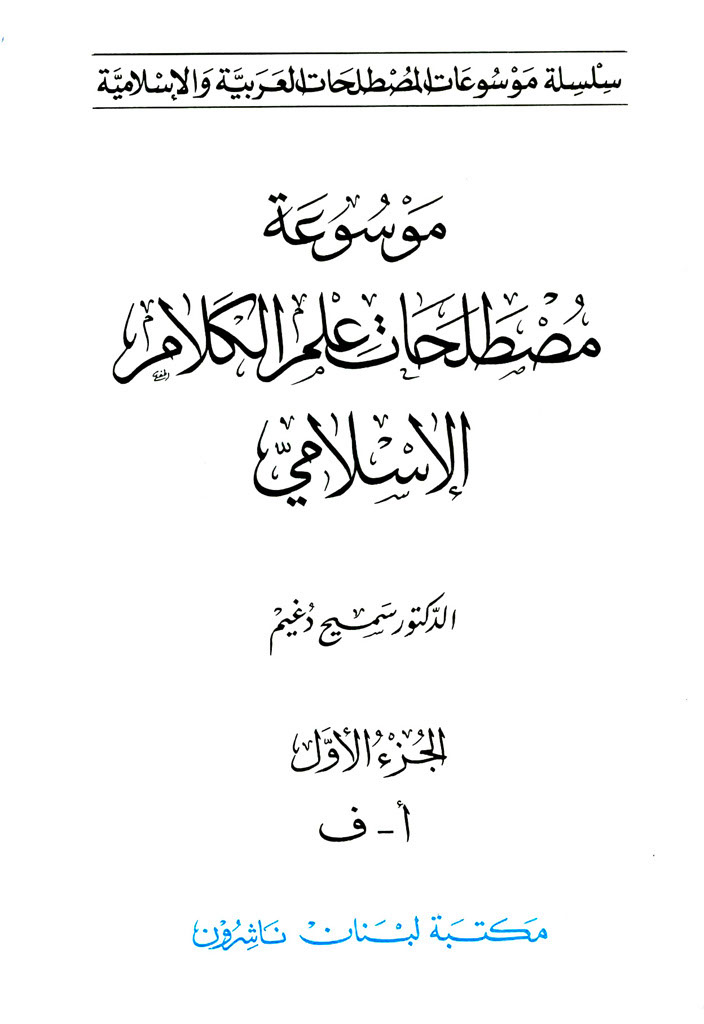 سِلْسِلة مَوْسُوعَات المُصْطلحَات العَرَبيَّة وَالإسْلاميَّة
مَوْسُوعَة
مُصْطَلَحَاتِ عِلْمِ الكَلَامِ
الإسْلاميّ
الدّكتور سَميح دُغيْم
الجُزءُ الأوَّل
أ - ف
مَكتبَة لبْنَان نَاشِرُوْن